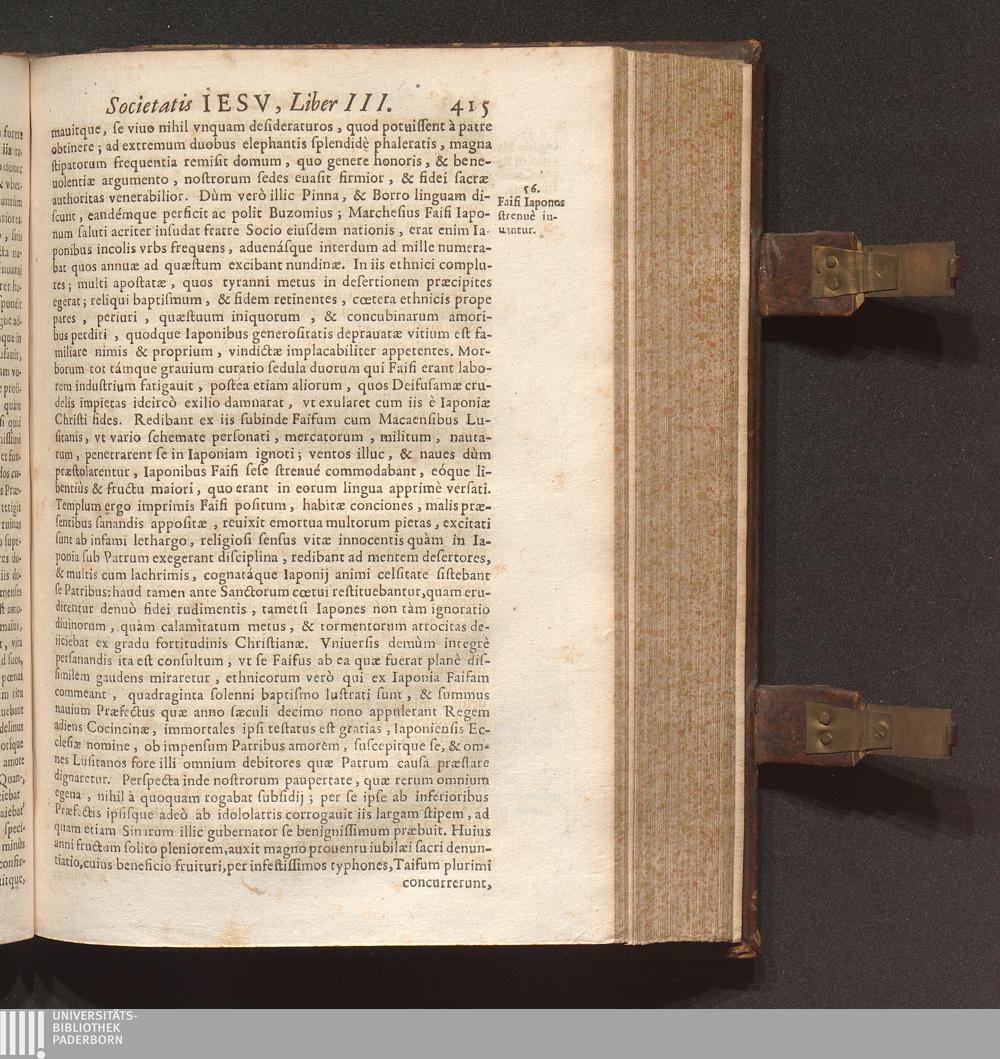 Societatis IESV, Liber III. 415
mauitque, se viuo nihil vnquam desideraturos, quod potuissent à patre
obtinere; ad extremum duobus elephantis splendidè phaleratis, magna
stipatorum frequentia remisit domum, quo genere honoris, & bene-
uolentiæ argumento, nostrorum sedes euasit firmior, & fidei sacræ
authoritas venerabilior. Dùm verò illic Pinna, & Borro linguam di-
scunt, eandémque perficit ac polit Buzomius; Marchesius Faifi Iapo-
num saluti acriter insudat fratre Socio eiusdem nationis, erat enim Ia-
ponibus incolis vrbs frequens, aduenásque interdum ad mille numera-
bat quos annuæ ad quæstum excibant nundinæ. In iis ethnici complu-
res; multi apostatæ, quos tyranni metus in desertionem præcipites
egerat; reliqui baptismum, & fidem retinentes, cœtera ethnicis prope
pares, periuri, quæstuum iniquorum, & concubinarum amori-
bus perditi, quodque Iaponibus generositatis deprauatæ vitium est fa-
miliare nimis & proprium, vindictæ implacabiliter appetentes. Mor-
borum tot támque grauium curatio sedula duorum qui Faifi erant labo-
rem industrium fatigauit, postea etiam aliorum, quos Deifusamæ cru-
delis impietas idcircò exilio damnarat, vt exularet cum iis è Iaponiæ
Christi fides. Redibant ex iis subinde Faifum cum Macaensibus Lu-
sitanis, vt vario schemate personati, mercatorum, militum, nauta-
rum, penetrarent se in Iaponiam ignoti; ventos illuc, & naues dùm
præstolarentur, Iaponibus Faifi sese strenué commodabant, eóque li-
bentiùs & fructu maiori, quo erant in eorum lingua apprimè versati.
Templum ergo imprimis Faifi positum, habitæ conciones, malis præ-
sentibus sanandis appositæ, reuixit emortua multorum pietas, excitati
sunt ab infami lethargo, religiosi sensus vitæ innocentis quàm in Ia-
ponia sub Patrum exegerant disciplina, redibant ad mentem desertores,
& multis cum lachrimis, cognatáque Iaponij animi celsitate sistebant
se Patribus: haud tamen ante Sanctorum cœtui restituebantur, quam eru-
direntur denuò fidei rudimentis, tametsi Iapones non tàm ignoratio
diuinorum, quàm calamitatum metus, & tormentorum atrocitas de-
iiciebat ex gradu fortitudinis Christianæ. Vniuersis demùm integrè
persanandis ita est consultum, vt se Faifus ab ea quæ fuerat planè dis-
similem gaudens miraretur, ethnicorum verò qui ex Iaponia Faifam
commeant, quadraginta solenni baptismo lustrati sunt, & summus
nauium Præfectus quæ anno sæculi decimo nono appulerant Regem
adiens Cocincinæ, immortales ipsi testatus est gratias, Iaponiensis Ec-
clesiæ nomine, ob impensum Patribus amorem, suscepitque se, & om-
nes Lusitanos fore illi omnium debitores quæ Patrum causa præstare
dignaretur. Perspecta inde nostrorum paupertate, quæ rerum omnium
egena, nihil à quoquam rogabat subsidij; per se ipse ab inferioribus
Præfectis ipsisque adeò ab idololatris corrogauit iis largam stipem, ad
quam etiam Sinarum illic gubernator se benignissimum præbuit. Huius
anni fructum solito pleniorem, auxit magno prouentu iubilæi sacri denun-
tiatio, cuius beneficio fruituri, per infestissimos typhones, Taifum plurimi
concurrerunt,
56.
Faifi Iapones
strenuè iu-
uantur.
UNIVERSITÄTS-
BIBLIOTHEK
PADERBORN